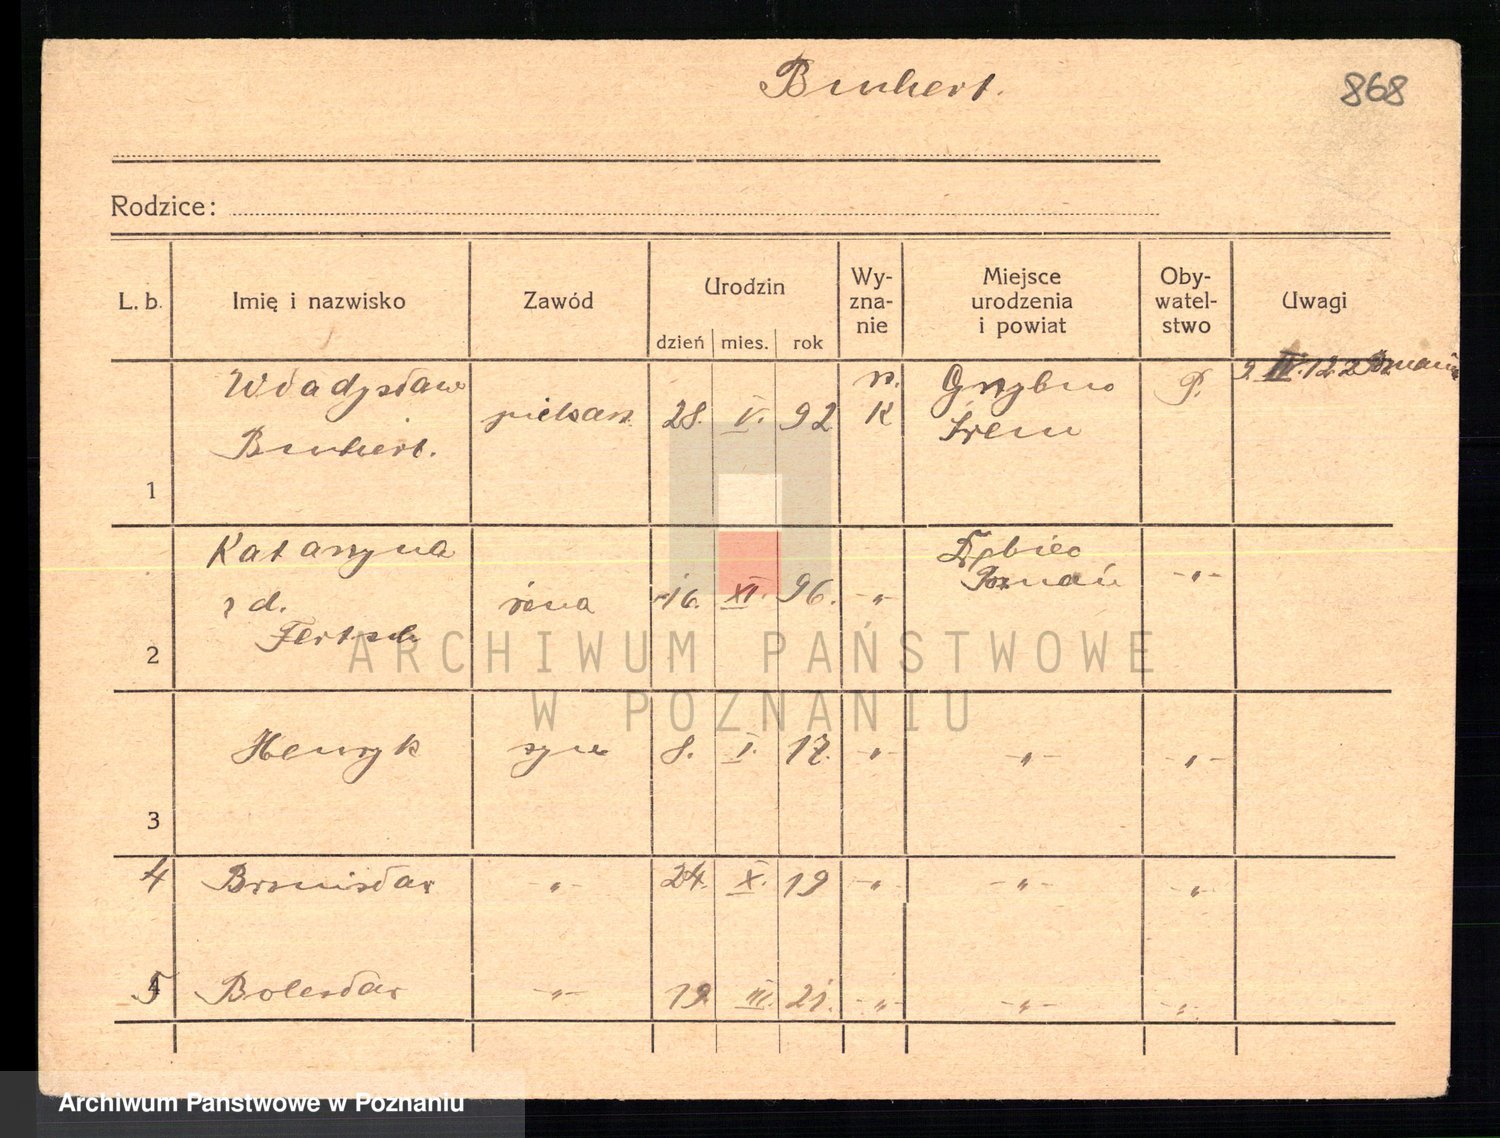 Bruhert.
868
Rodzice:
L. b. Imię i nazwisko Zawód Urodzin Wy-zna-nie Miejsce urodzenia i powiat Oby-watel-stwo Uwagi
dzień mies. rok
1 Władysław piekarz 28. V. 92 r. K Grzybno P.
Bruhert. Śrem
2 Katarzyna żona 16. XI. 96. -"- Dębiec -"-
z d. Poznań
Fertsch
3 Henryk syn 8. I. 17. -"- -"- -"-
4 Bronisław -"- 24. X. 19 -"- -"- -"-
5 Bolesław -"- 19. III. 21. -"- -"- -"-
4
ARCHIWUM PAŃSTWOWE
W POZNANIU
Archiwum Państwowe w Poznaniu